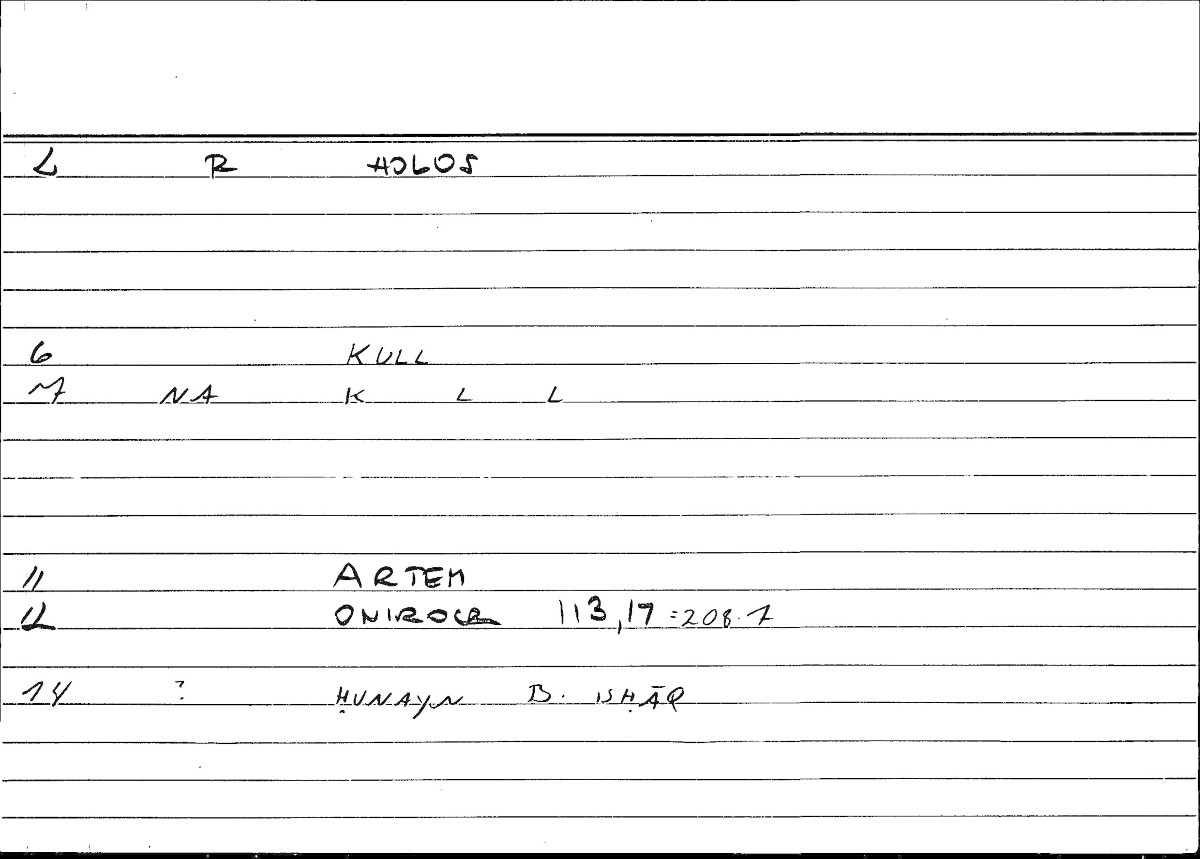 L R HOLOS
6 KULL
7 NA K L L
11 ARTEM
12 ONIROCR 113,17 =208.7
14 ? ḤUNAYN B. ISḤĀQ